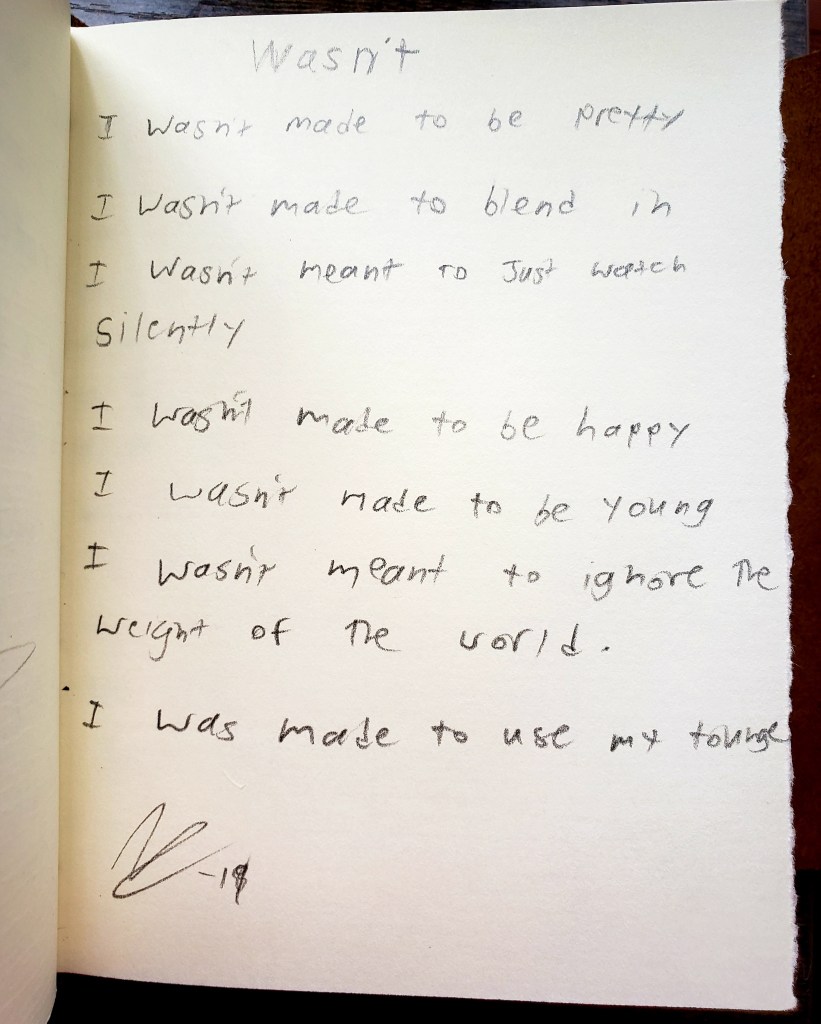 Wasn't
I wasn't made to be pretty
I wasn't made to blend in
I wasn't meant to Just watch
silently
I wasn't made to be happy
I wasn't made to be young
I wasn't meant to ignore the
weight of the world.
I was made to use my tounge